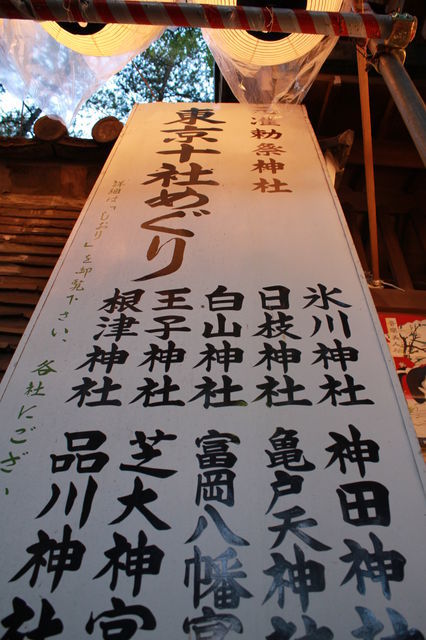 准勅祭神社
東京十社めぐり
氷川神社
日枝神社
白山神社
王子神社
根津神社
神田神社
亀戸天神社
富岡八幡宮
芝大神宮
品川神社
詳細は「しおり」を御覧下さい、各社にござい